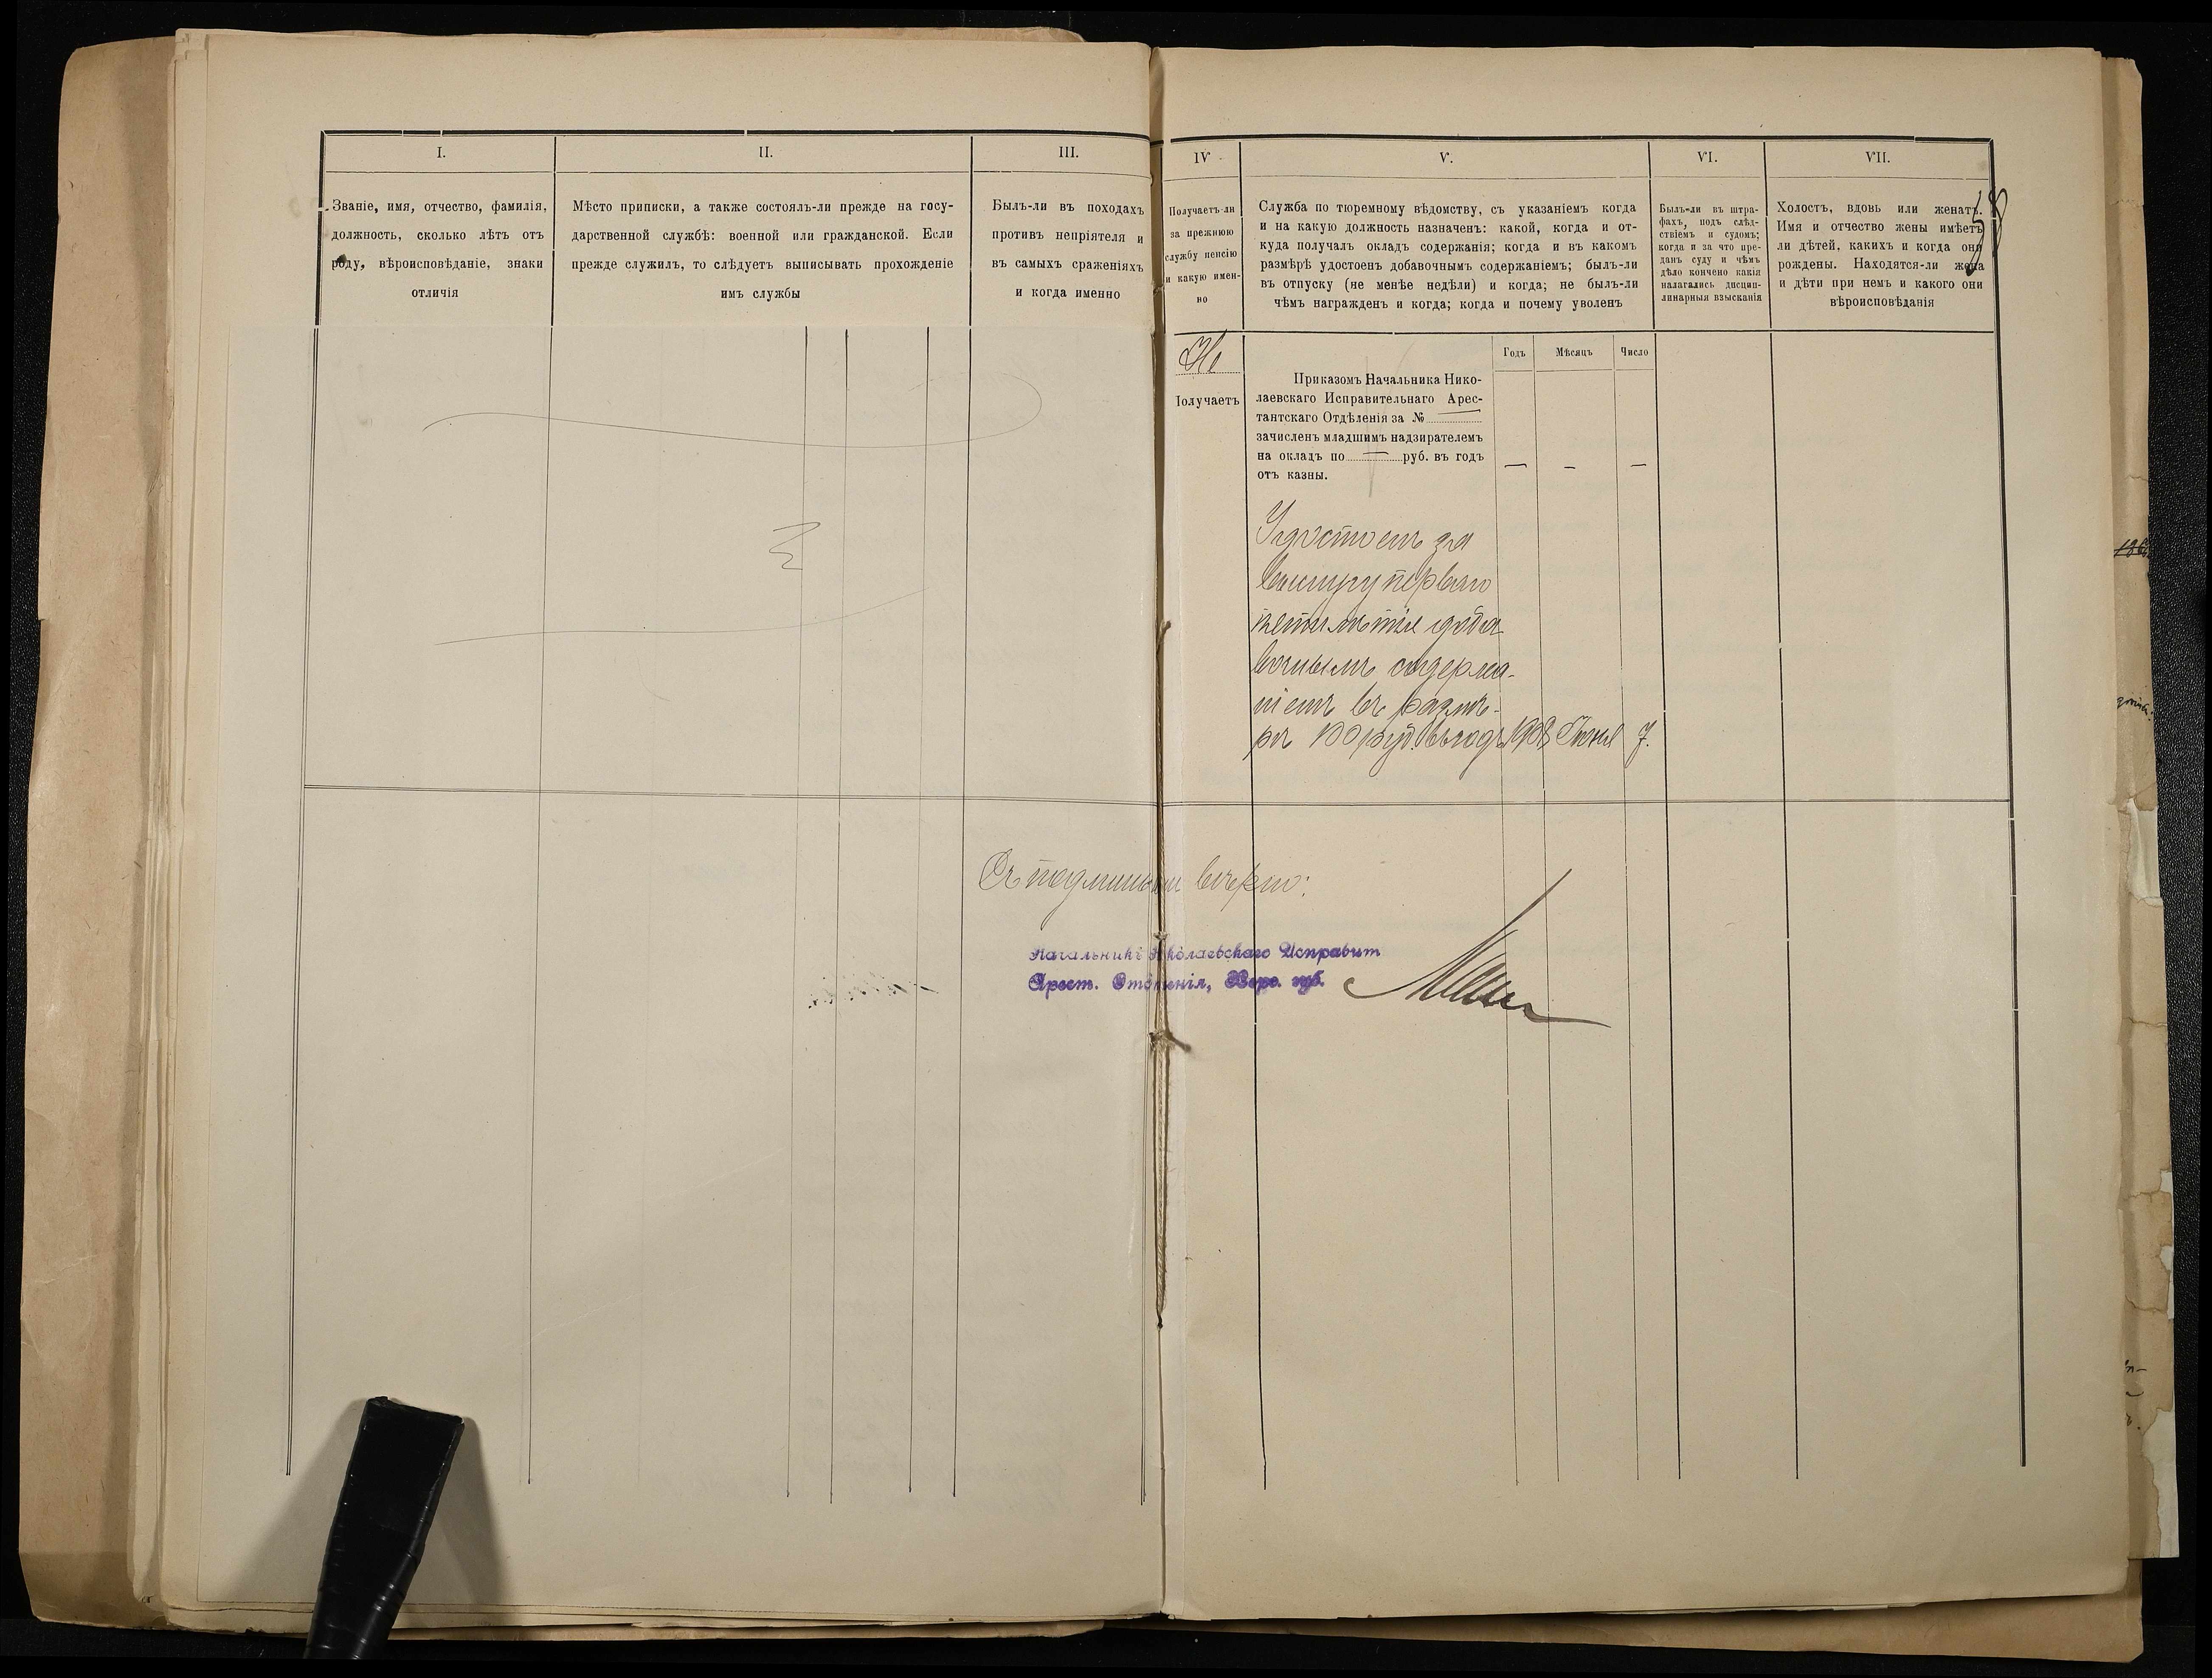 I.
Званіе, имя, отчество, фамилія,
должность, сколько лѣтъ отъ
роду, вѣроисповѣданіе, знаки
отличія
II.
Мѣсто приписки, а также состоялъ-ли прежде на госу-
дарственной службѣ: военной или гражданской. Если
прежде служилъ, то слѣдуетъ выписывать прохожденіе
имъ службы
III.
Былъ-ли въ походахъ
противъ непріятеля и
въ самыхъ сраженіяхъ
и когда именно
IV
Получаетъ-ли
за прежнюю
службу пенсію
и какую имен-
но
V.
Служба по тюремному вѣдомству, съ указаніемъ когда
и на какую должность назначенъ: какой, когда и от-
куда получалъ окладъ содержанія; когда и въ какомъ
размѣрѣ удостоенъ добавочнымъ содержаніемъ; былъ-ли
въ отпуску (не менѣе недѣли) и когда; не былъ-ли
чѣмъ награжденъ и когда; когда и почему уволенъ
VI.
Былъ-ли въ штра-
фахъ, подъ слѣд-
ствіемъ и судомъ;
когда и за что пре-
данъ суду и чѣмъ
дѣло кончено какія
налагались дисцип-
линарныя взысканія
VII.
Холостъ, вдовъ или женатъ.
Имя и отчество жены имѣетъ
ли дѣтей, какихъ и когда они
рождены. Находятся-ли жена
и дѣти при немъ и какого они
вѣроисповѣданія
58
Не
Получаетъ
Годъ Мѣсяцъ Число
Приказомъ Начальника Нико-
лаевскаго Исправительнаго Арес-
тантскаго Отдѣленія за № —
зачисленъ младшимъ надзирателемъ
на окладъ по — руб. въ годъ
отъ казны.
— — —
Удостоенъ за
выслугу перваго
пятилѣтія доба
вочнымъ содержа-
ніемъ въ размѣ-
рѣ 100 руб. въ годъ 1908 Іюня 7.
Съ подлиннымъ вѣрно:
Начальникъ Николаевскаго Исправит
Арест. Отдѣленія, Перм. губ.